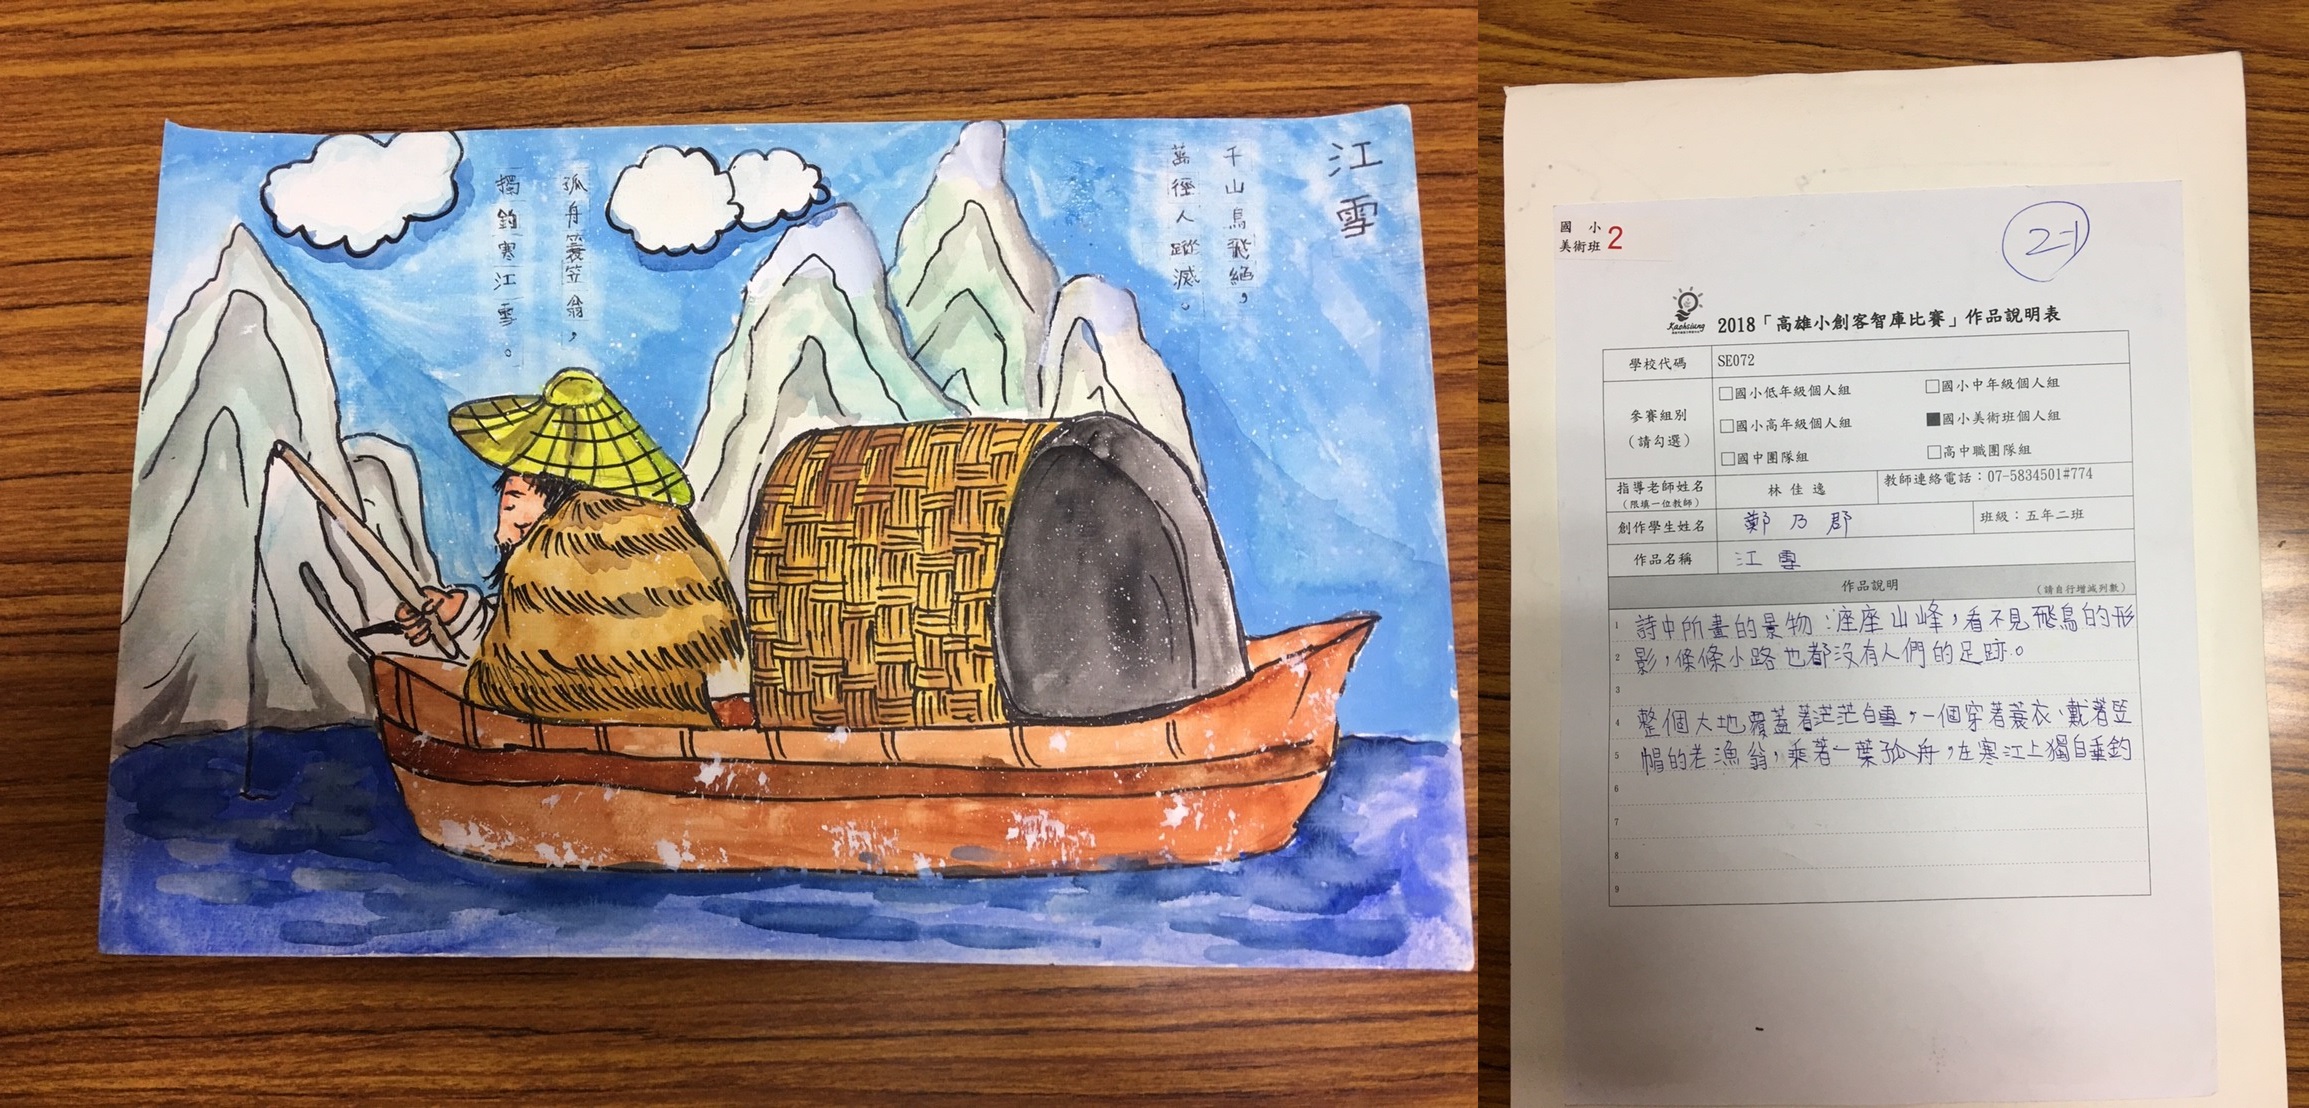 江雪
千山鳥飛絕，
萬徑人蹤滅。
孤舟簑笠翁，
獨釣寒江雪。
國小
美術班 2
2-1
Kaohsiung
2018「高雄小創客智庫比賽」作品說明表
學校代碼 SE072
參賽組別
（請勾選）
□國小低年級個人組 □國小中年級個人組
□國小高年級個人組 ■國小美術班個人組
□國中團隊組 □高中職團隊組
指導老師姓名
（限填一位教師）
林佳逸 教師連絡電話：07-5834501#774
創作學生姓名 鄭乃郡 班級：五年二班
作品名稱 江雪
作品說明 （請自行增減列數）
1 詩中所畫的景物：座座山峰，看不見飛鳥的形
2 影，條條小路也都沒有人們的足跡。
3
4 整個大地覆蓋著茫茫白雪，一個穿著蓑衣、戴著笠
5 帽的老漁翁，乘著一葉孤舟，在寒江上獨自垂釣
6
7
8
9